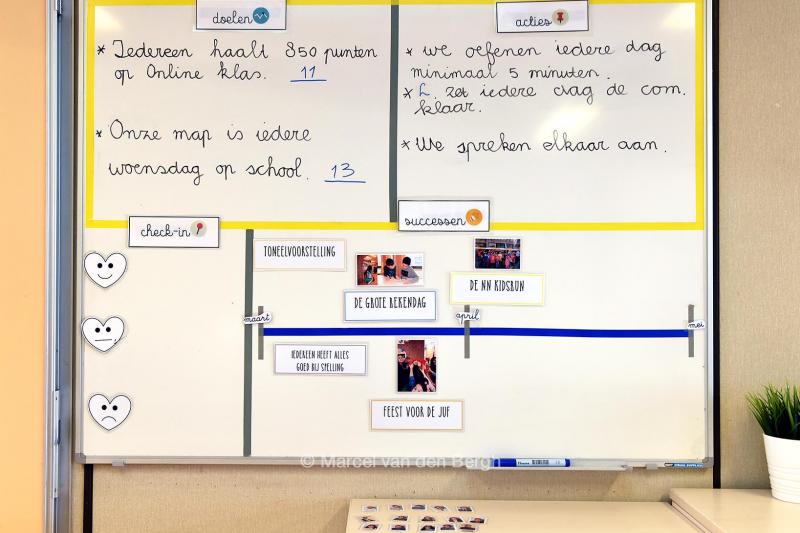 doelen
* Iedereen haalt 850 punten
op Online klas. 11
* Onze map is iedere
woensdag op school. 13
acties
* we oefenen iedere dag
minimaal 5 minuten.
* L. zet iedere dag de com.
klaar.
* We spreken elkaar aan.
check-in
successen
TONEELVOORSTELLING
DE GROTE REKENDAG
DE NN KIDSRUN
maart
april
mei
IEDEREEN HEEFT ALLES
GOED BIJ SPELLING
FEEST VOOR DE JUF
© Marcel van den Bergh